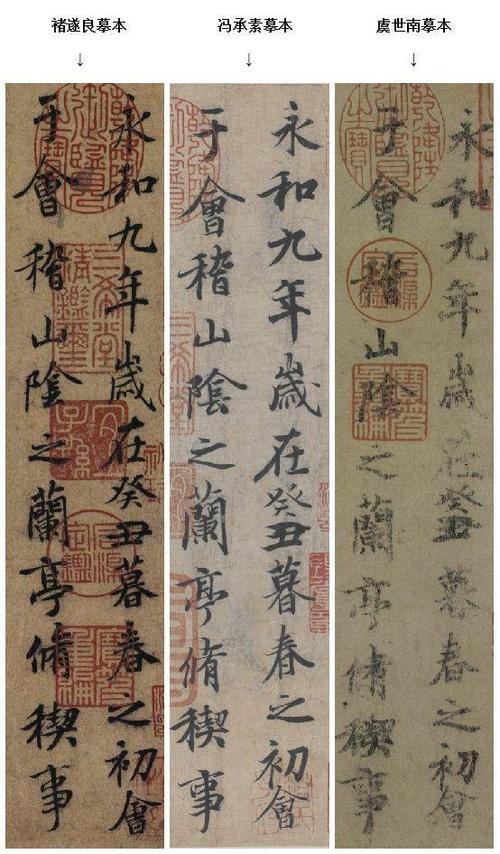 褚遂良摹本
↓
永和九年歲在癸丑暮春之初會
于會稽山陰之蘭亭脩稧事
冯承素摹本
↓
永和九年歲在癸丑暮春之初會
于會稽山陰之蘭亭脩稧事
虞世南摹本
↓
永和九年歲在癸丑暮春之初會
于會稽山陰之蘭亭脩稧事